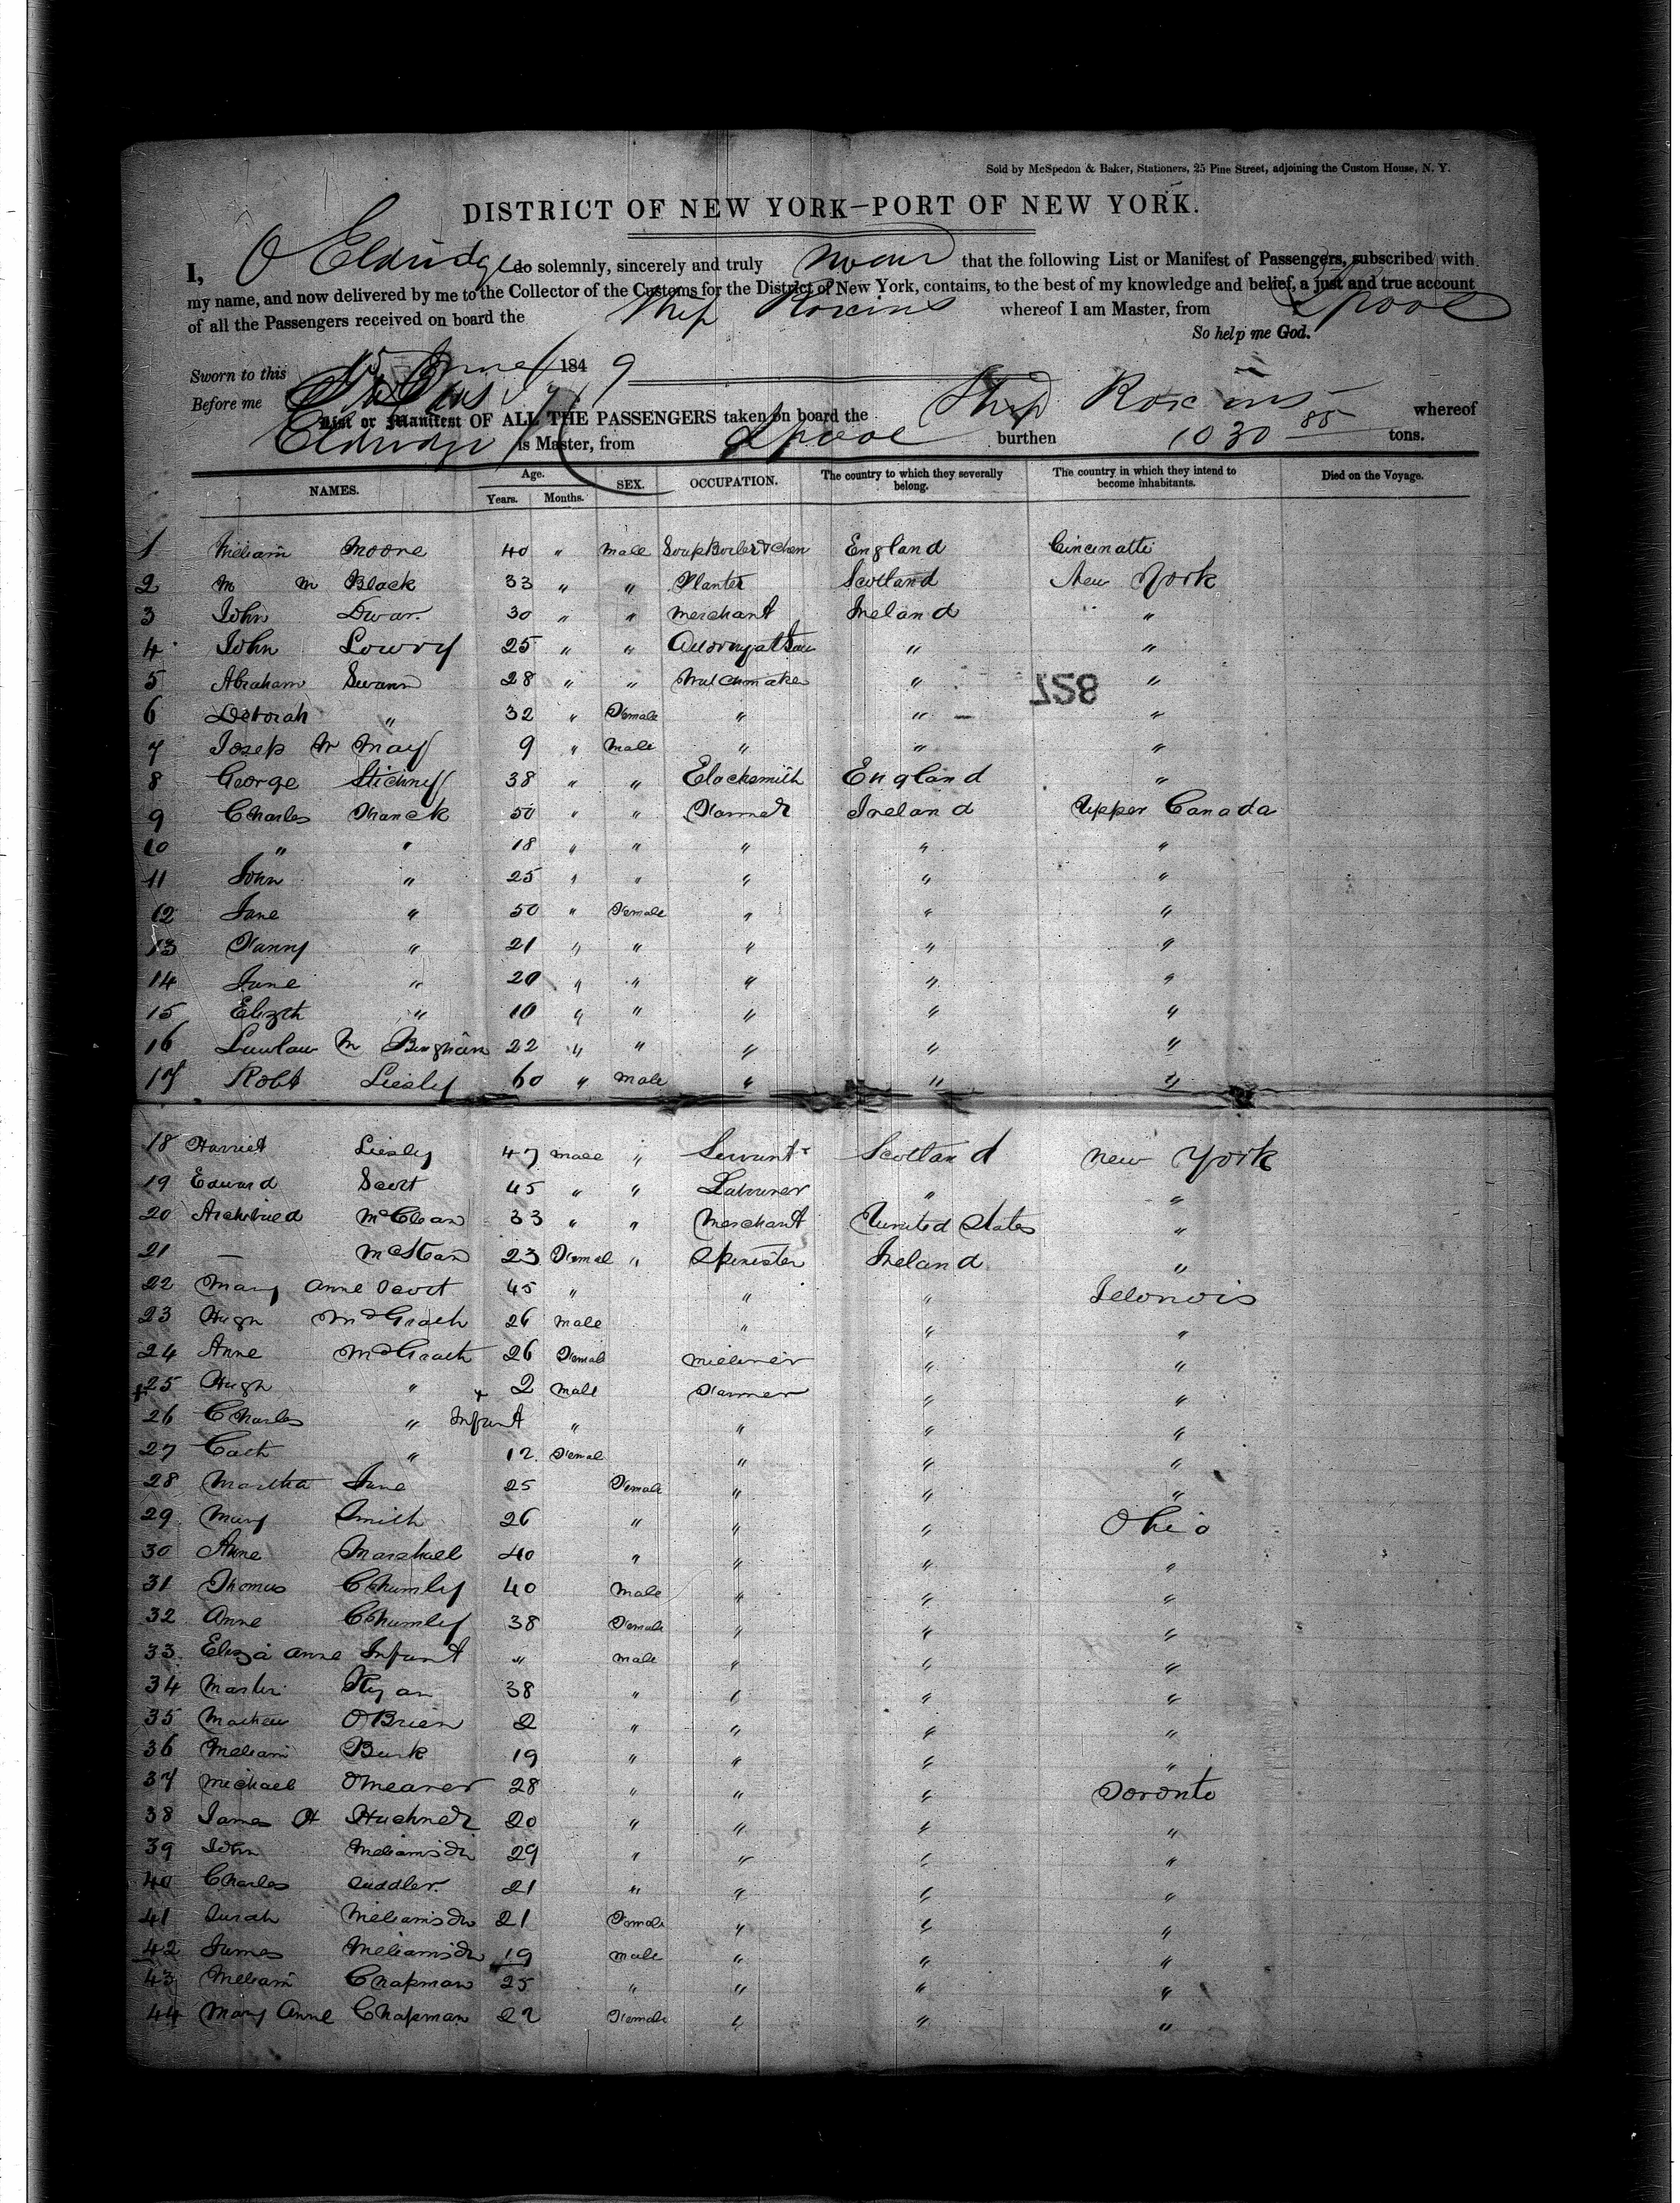 Sold by McSpedon & Baker, Stationers, 25 Pine Street, adjoining the Custom House, N. Y.
DISTRICT OF NEW YORK—PORT OF NEW YORK.
I, O Eldridge do solemnly, sincerely and truly swear that the following List or Manifest of Passengers, subscribed with
my name, and now delivered by me to the Collector of the Customs for the District of New York, contains, to the best of my knowledge and belief, a just and true account
of all the Passengers received on board the Ship Roscius whereof I am Master, from Lpool
So help me God.
Sworn to this 15 June 1849
Before me
List or Manifest OF ALL THE PASSENGERS taken on board the Ship Roscius whereof
Eldridge is Master, from Lpool burthen 1030 85 tons.
NAMES. Age. Years. Months. SEX. OCCUPATION. The country to which they severally belong. The country in which they intend to become inhabitants. Died on the Voyage.
1 William Moore 40 " Male England Cincinatti
2 M M Black 33 " " Planter Scotland New York
3 John 30 " " Merchant Ireland "
4 John Lowry 25 " " " "
5 Abraham Swann 28 " " Watchmaker " "
728
6 Deborah " 32 " Female " " "
7 Josep M May 9 " Male " " "
8 George Stickney 38 " " England "
9 Charles Franck 50 " " Farmer Ireland Upper Canada
10 " " 18 " " " " "
11 John " 25 " " " " "
12 Jane " 50 " Female " " "
13 Fanny " 21 " " " " "
14 Jane " 20 " " " " "
15 Elizth " 10 " " " " "
16 M Bingham 22 " " " " "
17 Robt Liesly 60 " Male " " "
18 Harriet Liesly 47 Male " Servant Scotland New York
19 Edward Scott 45 " " Labourer " "
20 Archibald McClean 33 " " Merchant United States "
21 — 23 Femal " Spinister Ireland "
22 Mary Anne Scott 45 " " " Illonois
23 Hugh McGrath 26 Male " " "
24 Anne McGrath 26 Femal Milliner " "
25 Hugh " 2 Male Farmer " "
26 Charles " Infant " " " "
27 Cath " 12 Femal " " "
28 Martha Jane 25 Female " " "
29 Mary Smith 26 " " " Ohio
30 Anne Marshall 40 " " " "
31 Thomas Chumley 40 Male " " "
32 Anne Chumley 38 Female " " "
33 Eliza Anne Infant " Male " " "
34 Martin Ryan 38 " " " "
35 Mathew OBrien 2 " " " "
36 William Burk 19 " " " "
37 Michael OMearer 28 " " " Toronto
38 James H 20 " " " "
39 John Williamson 29 " " " "
40 Charles 21 " " " "
41 Sarah Williamson 21 Female " " "
42 James Williamson 19 Male " " "
43 William Chapman 25 " " " "
44 Mary Anne Chapman 22 Female " " "